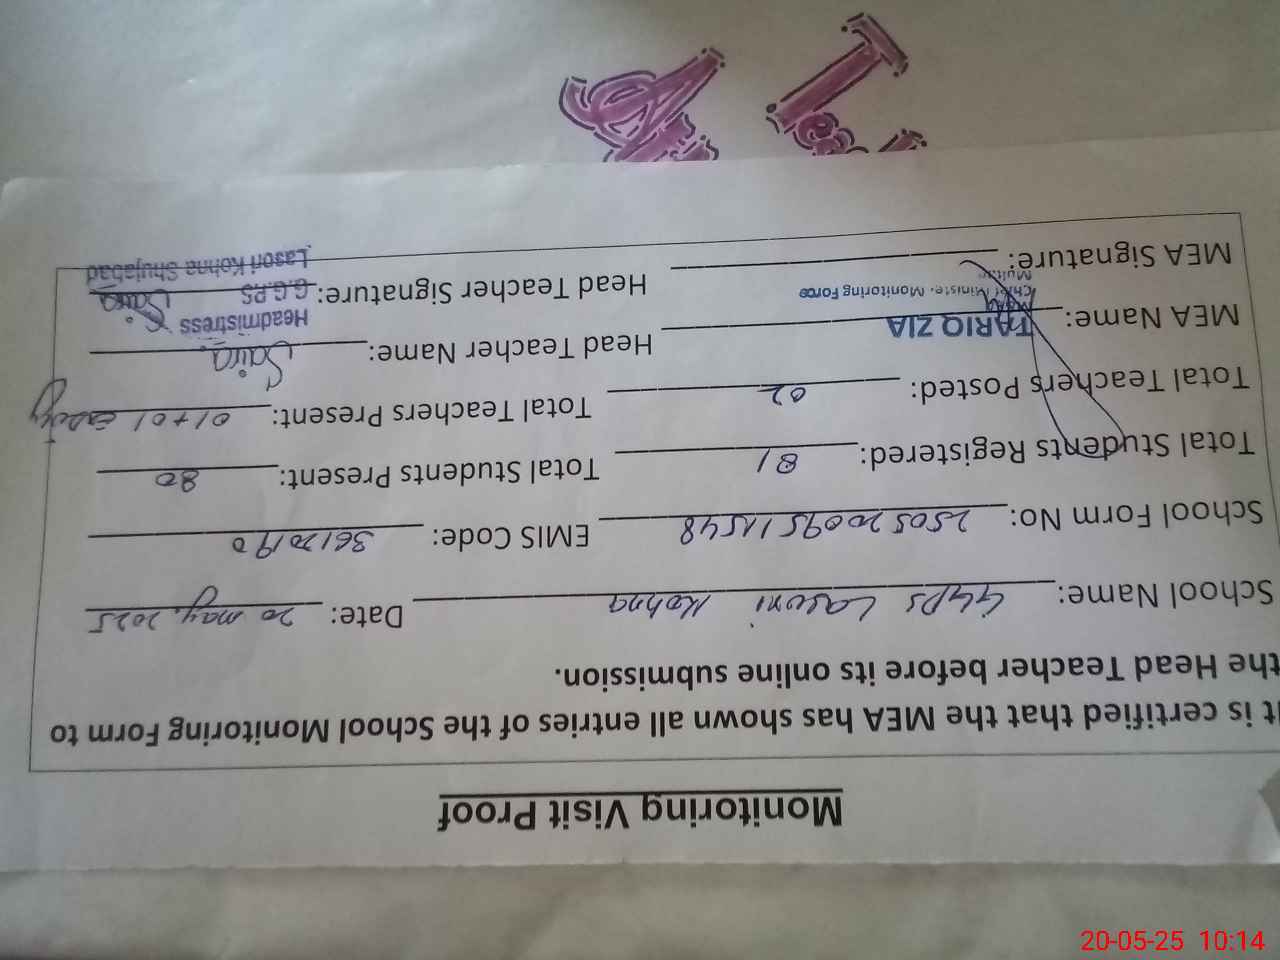 Monitoring Visit Proof
It is certified that the MEA has shown all entries of the School Monitoring Form to
the Head Teacher before its online submission.
School Name: GGPS Lasori Kohna Date: 20 may, 2025
School Form No: 2505200951548 EMIS Code: 36120190
Total Students Registered: 81 Total Students Present: 80
Total Teachers Posted: 02 Total Teachers Present: 01+01
MEA Name: TARIQ ZIA Head Teacher Name: Saira
MEA
Chief Minister's Monitoring Force
Multan
Headmistress
MEA Signature: Head Teacher Signature: Saira
G.G.P.S
Lasori Kohna Shujabad
20-05-25 10:14